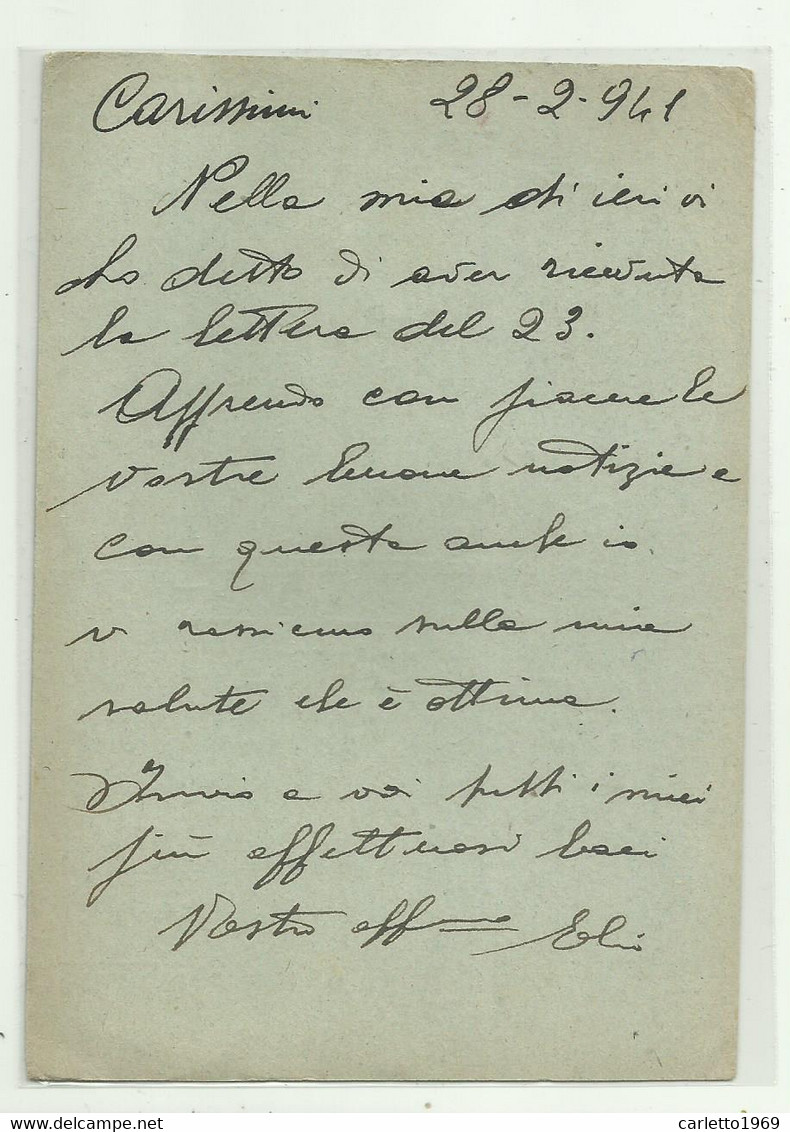 Carissimi 28-2-941
Nella mia di ieri vi
ho detto di aver ricevuta
la lettera del 23.
Apprendo con piacere le
vostre buone notizie e
con questa anche io
vi rassicuro sulla mia
salute che è ottima.
Invio a voi tutti i miei
più affettuosi baci
Vostro affmo Elio
carletto1969